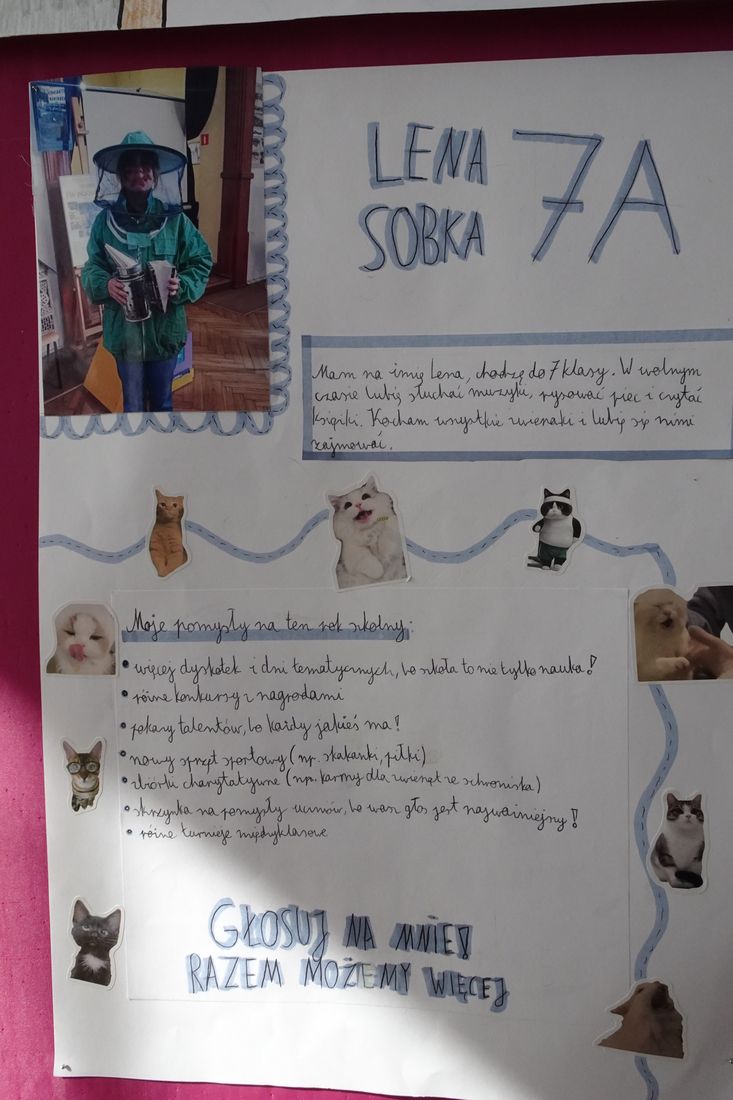 LENA
SOBKA
7A
Mam na imię Lena, chodzę do 7 klasy. W wolnym
czasie lubię słuchać muzyki, rysować piec i czytać
książki. Kocham wszystkie zwierzaki i lubię się nimi
zajmować.
Moje pomysły na ten rok szkolny:
• więcej dyskotek i dni tematycznych, bo szkoła to nie tylko nauka!
• różne konkursy z nagrodami
• pokazy talentów, bo każdy jakieś ma!
• nowy sprzęt sportowy (np. skakanki, piłki)
• zbiórki charytatywne (np. karmy dla zwierząt ze schroniska)
• skrzynka na pomysły uczniów, bo wasz głos jest najważniejszy!
• różne turnieje międzyklasowe
GŁOSUJ NA MNIE!
RAZEM MOŻEMY WIĘCEJ